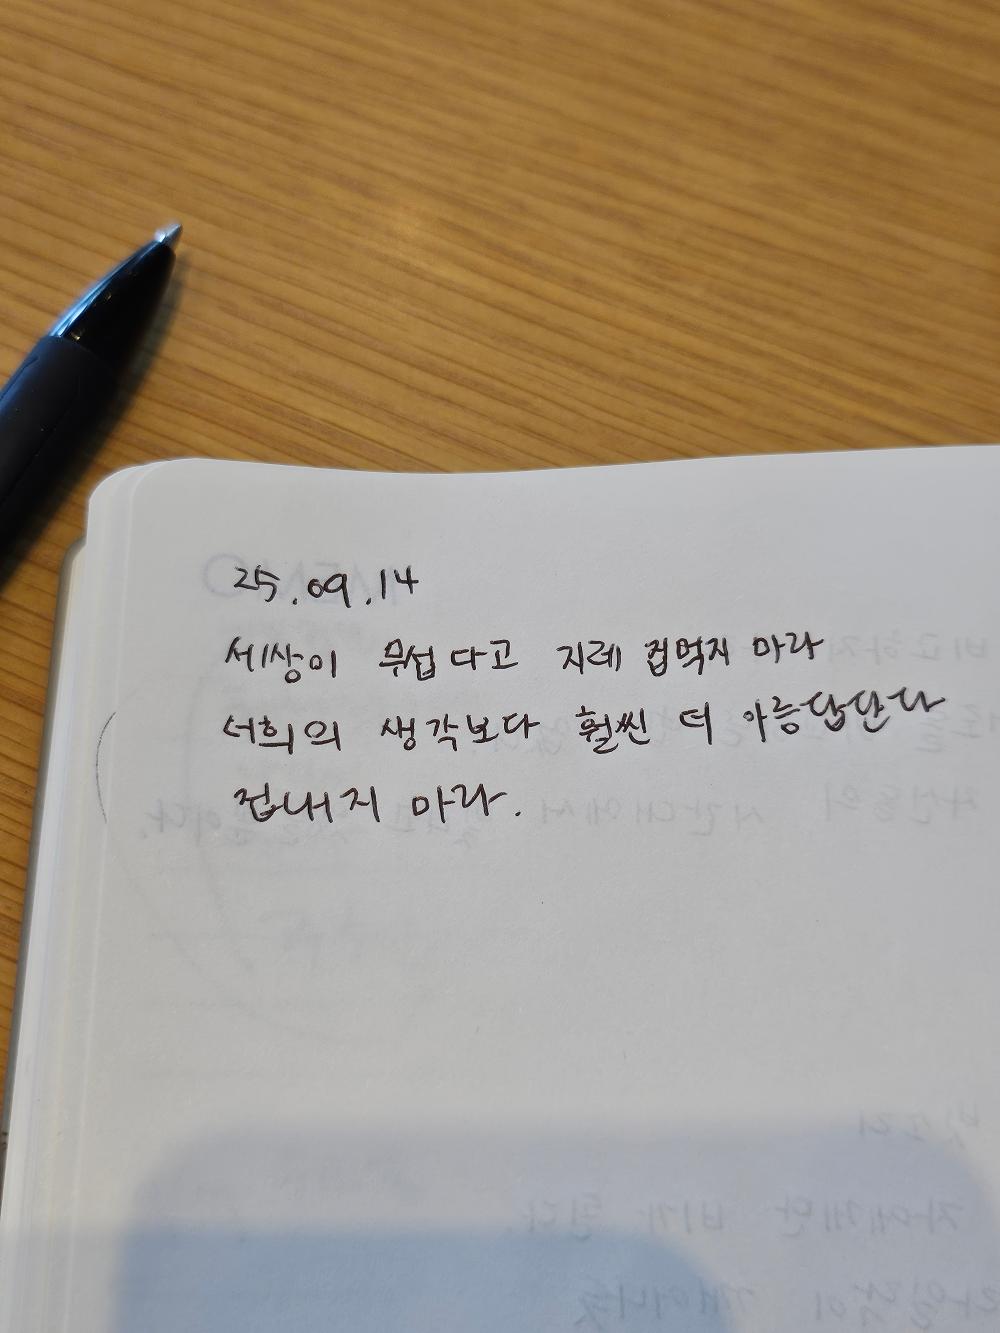 25.09.14
세상이 무섭다고 지레 겁먹지 마라
너희의 생각보다 훨씬 더 아름답단다
겁내지 마라.